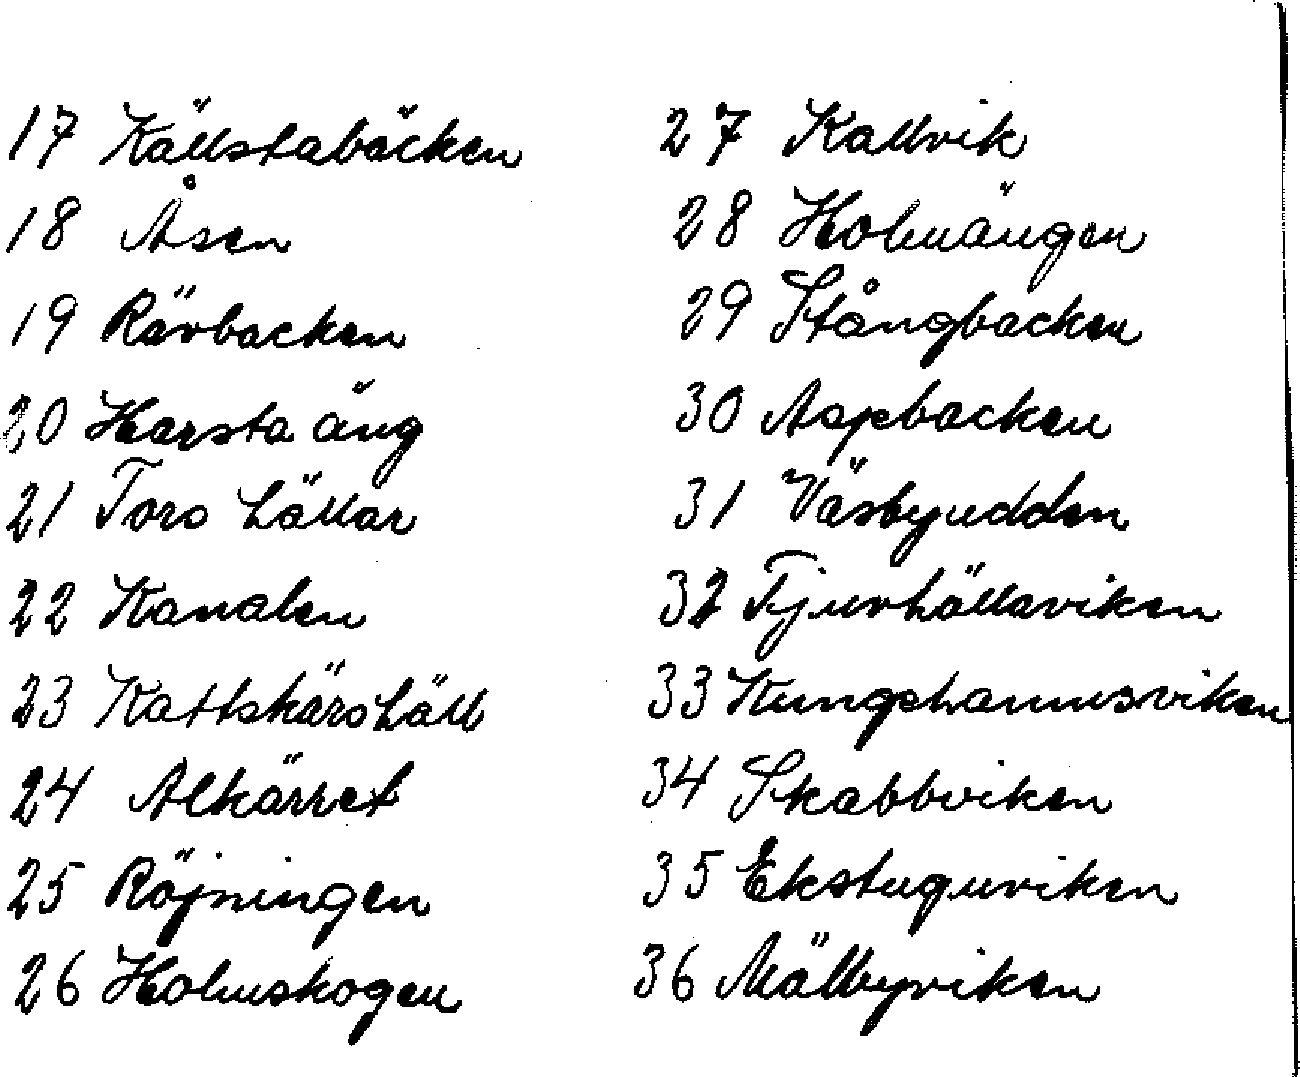 17 Källstabäcken
18 Åsen
19 Rävbacken
20 Harsta äng
21 Toro hällar
22 Kanalen
23 Kattskärshäll
24 Alkärret
25 Röjningen
26 Holmskogen
27 Kallvik
28 Holmängen
29 Stångbacken
30 Aspbacken
31 Väsbyudden
32 Tjurhällaviken
33 Kungshamnsviken
34 Skabbviken
35 Ekstuguviken
36 Mälbyviken